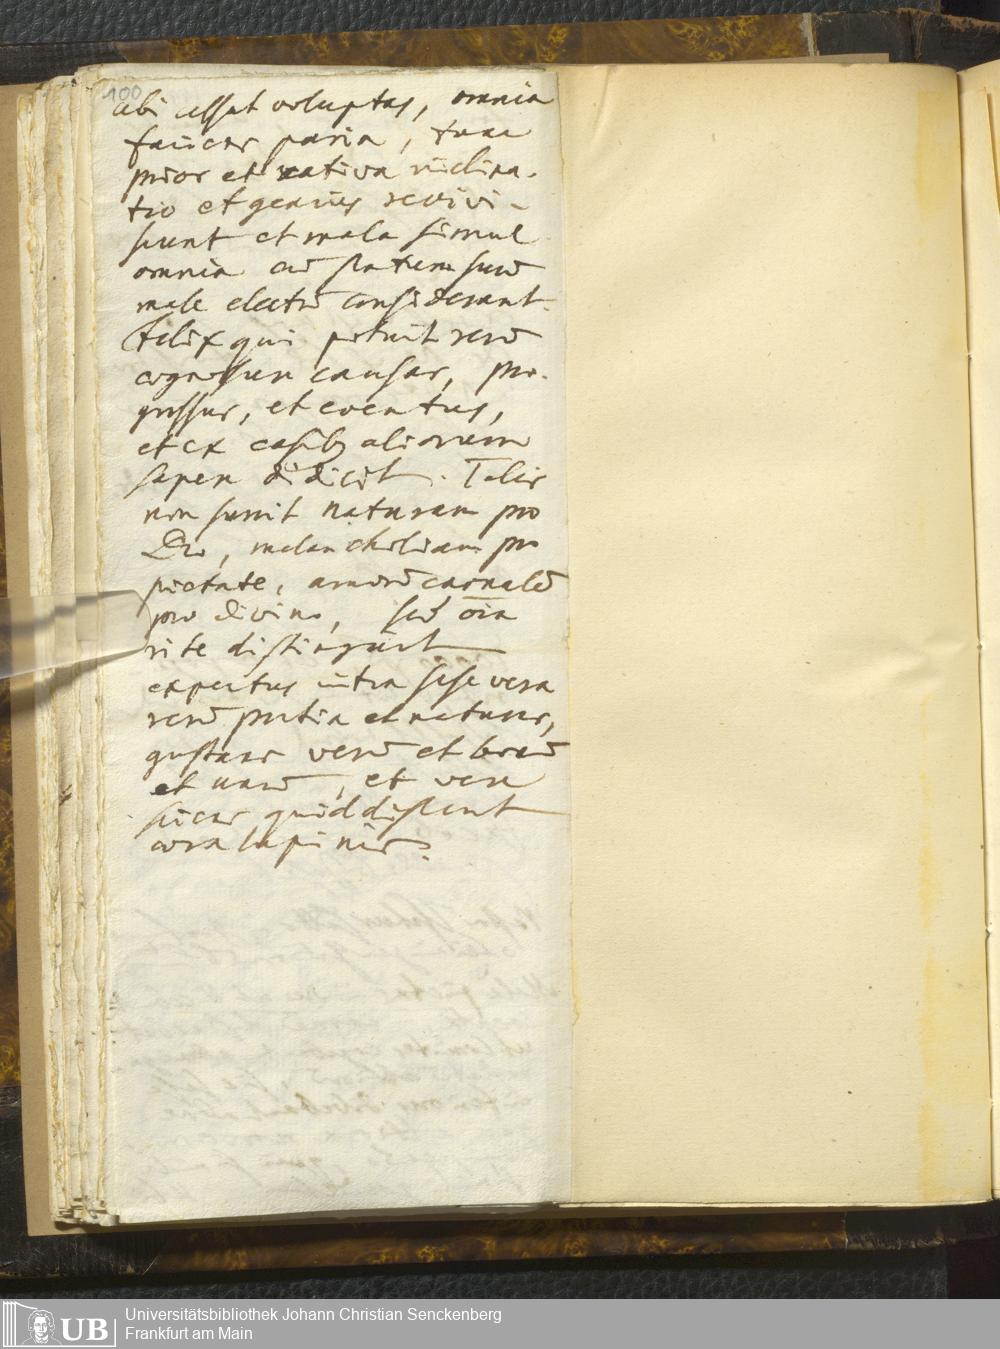 100
ubi cessat voluptas, omnia
faciens paria, tunc
prior et nativa inclina-
tio et genius revivi-
scunt et mala simul
omnia cū statum suū
male electū considerant.
Felix qui potuit rerū
cognoscere causas, pro-
gressus, et eventus,
et ex casibꝫ aliorum
sapere didicit. Talis
non sumit naturam pro
Deo, melancholiam pro
pietate, amorē carnalē
pro divino, sed oīa
rite distinguit
expertus intra sese vera
rerū pretia et naturas,
gustans verū et bonū
et unū, et vere
sciens quid distent
aera lupinis.
Universitätsbibliothek Johann Christian Senckenberg
Frankfurt am Main
UB